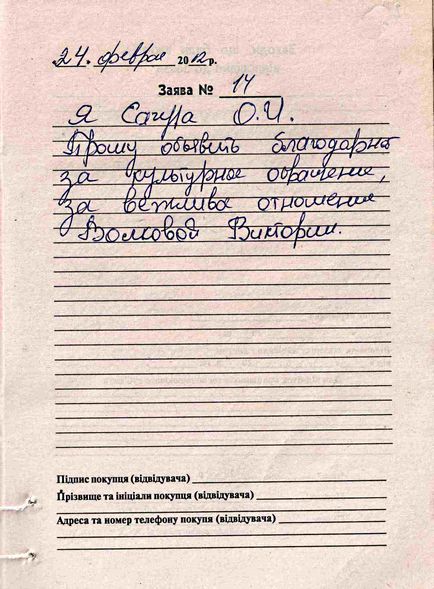 24. февраля 2012 р.
Заява № 14
Я Сагура О.И.
Прошу объявить благодарность
за культурное обращение,
за вежливое отношение
Волковой Виктории.
Підпис покупця (відвідувача)
Прізвище та ініціали покупця (відвідувача)
Адреса та номер телефону покупя (відвідувача)